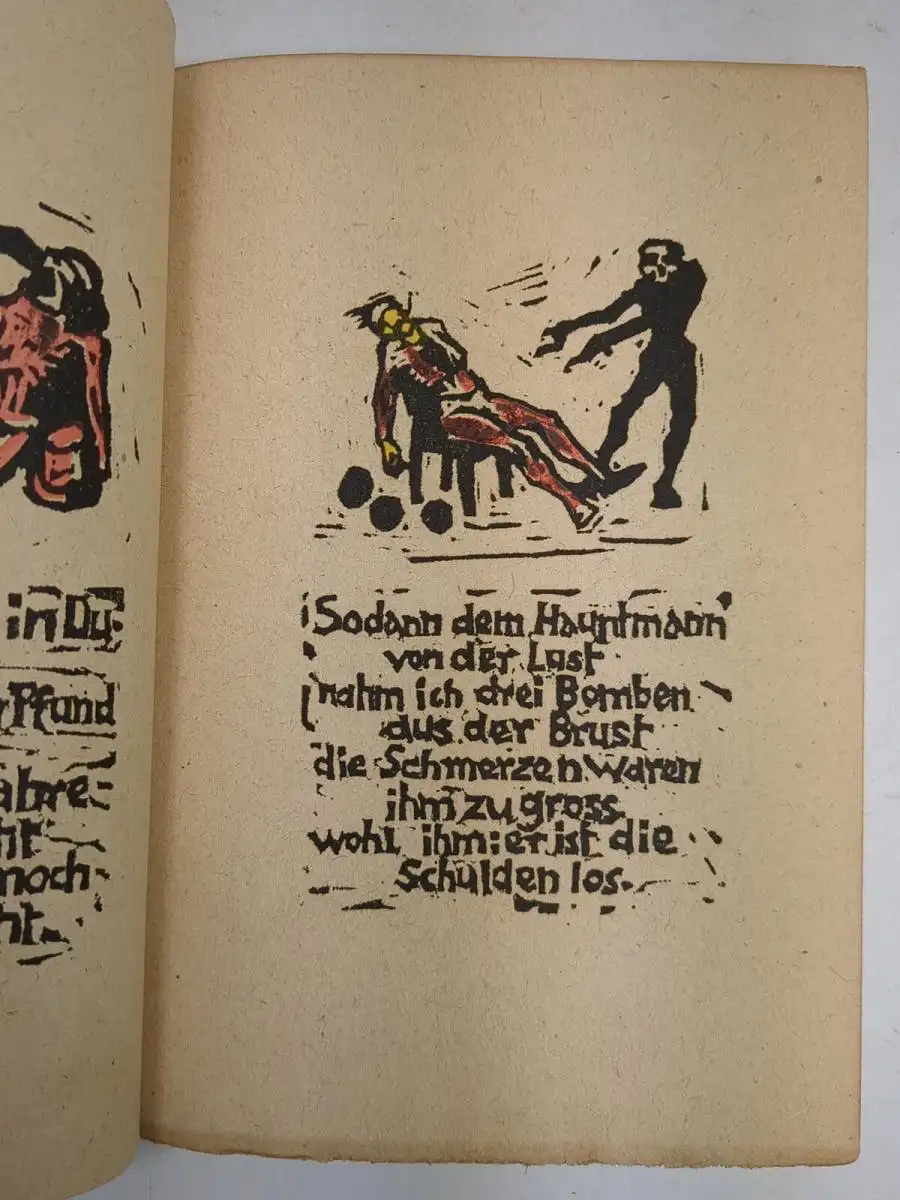 in Du-
Pfund
abre-
ht
moch-
ht.
Sodann dem Hauptmann
von der Lust
nahm ich drei Bomben
aus der Brust
die Schmerzen waren
ihm zu gross
wohl ihm: er ist die
Schulden los.